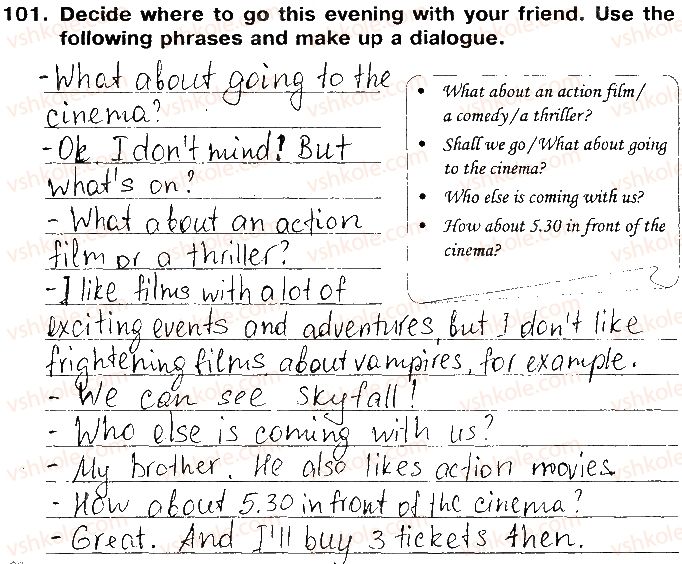 101. Decide where to go this evening with your friend. Use the
following phrases and make up a dialogue.
- What about going to the
cinema?
- Ok. I don't mind! But
what's on?
- What about an action
film or a thriller?
- I like films with a lot of
exciting events and adventures, but I don't like
frightening films about vampires, for example.
- We can see Skyfall!
- Who else is coming with us?
- My brother. He also likes action movies.
- How about 5.30 in front of the cinema?
- Great. And I'll buy 3 tickets then.
• What about an action film/
a comedy/a thriller?
• Shall we go/What about going
to the cinema?
• Who else is coming with us?
• How about 5.30 in front of the
cinema?
vshkole.com